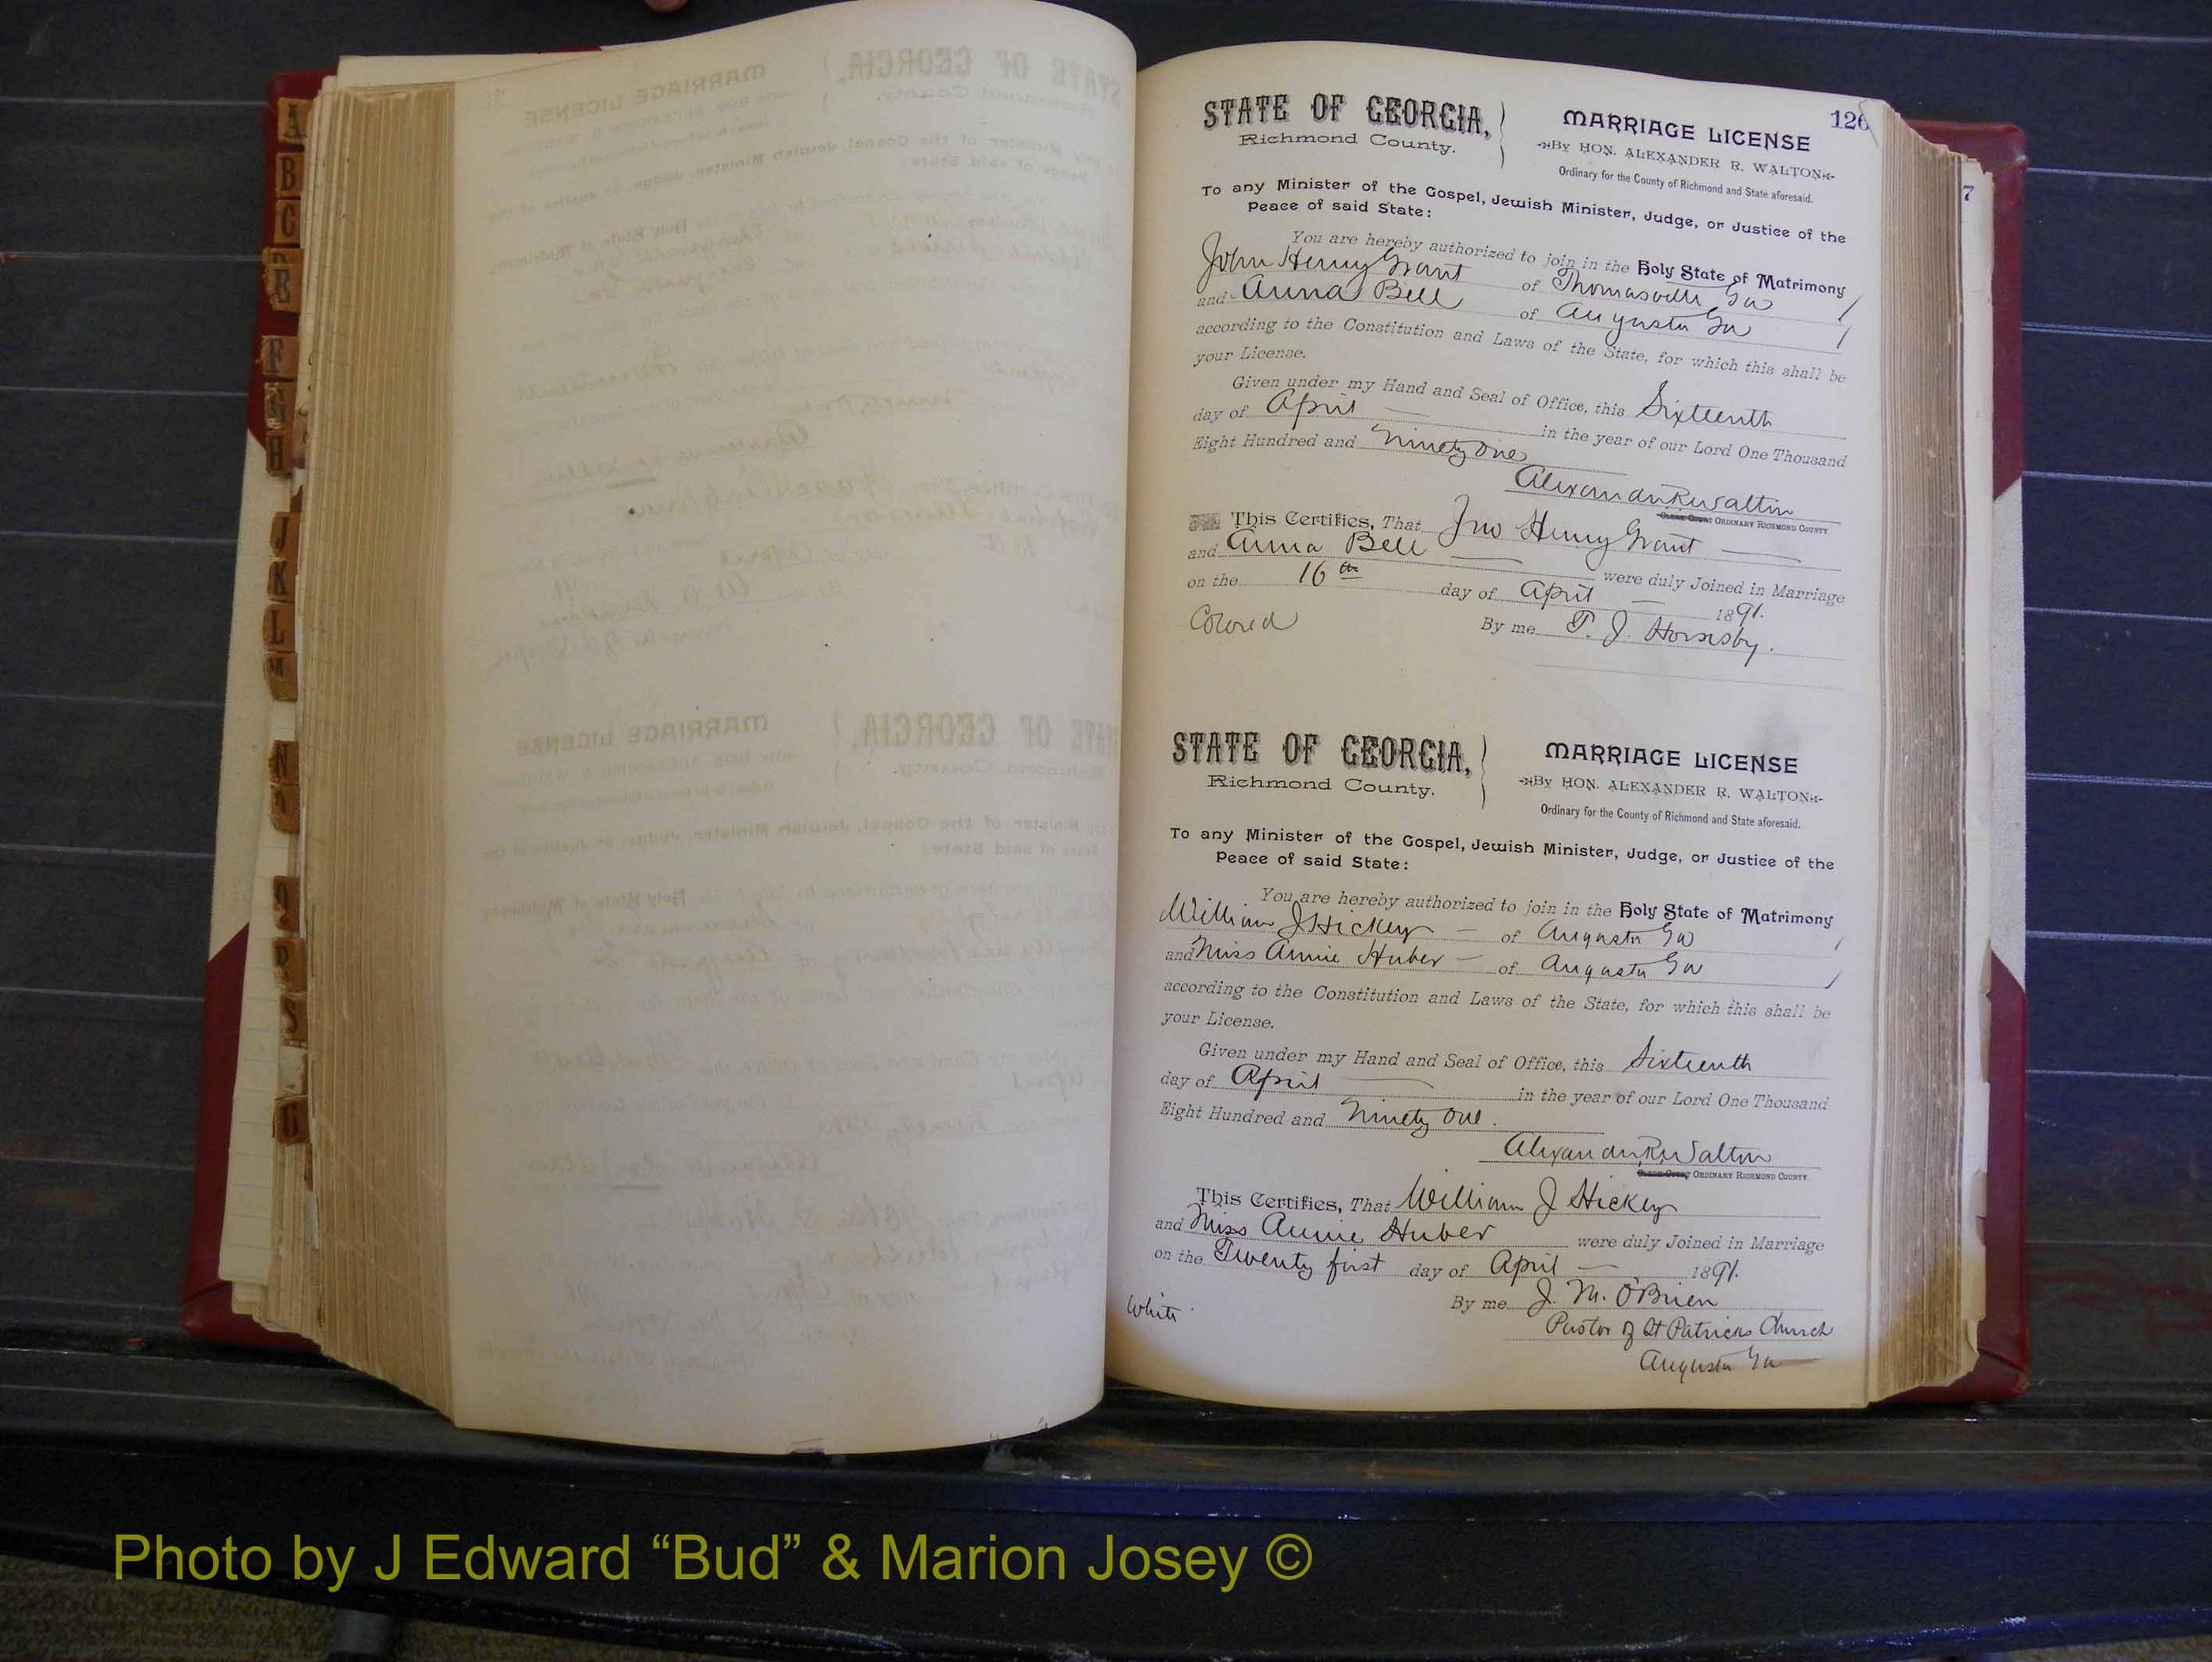 A
B
C
E
F
G
H
J
K
L
M
N
O
Q
R
S
126
7
STATE OF GEORGIA,
Richmond County.
MARRIAGE LICENSE
By HON. ALEXANDER R. WALTON
Ordinary for the County of Richmond and State aforesaid.
To any Minister of the Gospel, Jewish Minister, Judge, or Justice of the
Peace of said State:
You are hereby authorized to join in the Holy State of Matrimony
John Henry Grant of Thomasville Ga
and Anna Bell of Augusta Ga
according to the Constitution and Laws of the State, for which this shall be
your License.
Given under my Hand and Seal of Office, this Sixteenth
day of April in the year of our Lord One Thousand
Eight Hundred and Ninety One
Alexander R Walton
ORDINARY RICHMOND COUNTY
This Certifies, That Jno Henry Grant
and Anna Bell were duly Joined in Marriage
on the 16th day of April 1891.
Colored By me T. J. Hornsby.
STATE OF GEORGIA,
Richmond County.
MARRIAGE LICENSE
By HON. ALEXANDER R. WALTON
Ordinary for the County of Richmond and State aforesaid.
To any Minister of the Gospel, Jewish Minister, Judge, or Justice of the
Peace of said State:
You are hereby authorized to join in the Holy State of Matrimony
William J Hickey of Augusta Ga
and Miss Annie Huber of Augusta Ga
according to the Constitution and Laws of the State, for which this shall be
your License.
Given under my Hand and Seal of Office, this Sixteenth
day of April in the year of our Lord One Thousand
Eight Hundred and Ninety One.
Alexander R Walton
ORDINARY RICHMOND COUNTY.
This Certifies, That William J Hickey
and Miss Annie Huber were duly Joined in Marriage
on the Twenty first day of April 1891.
White By me J. M. O'Brien
Pastor of St Patricks Church
Augusta Ga
Photo by J Edward “Bud” & Marion Josey ©